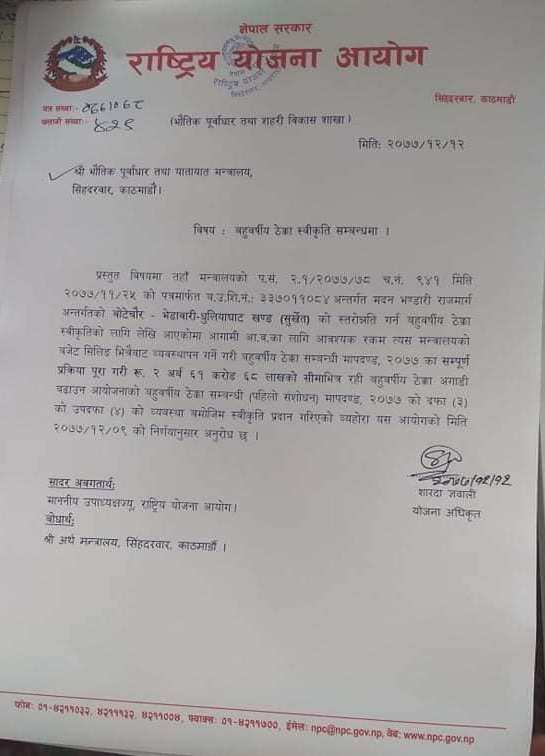 नेपाल सरकार
राष्ट्रिय योजना आयोग
सिंहदरवार, काठमाडौं
पत्र संख्याः-
चलानी संख्याः- ४२९
(भौतिक पूर्वाधार तथा शहरी विकास शाखा)
मितिः २०७७/१२/१२
श्री भौतिक पूर्वाधार तथा यातायात मन्त्रालय,
सिंहदरवार, काठमाडौं।
विषय : बहुवर्षीय ठेक्का स्वीकृति सम्बन्धमा ।
प्रस्तुत विषयमा तहाँ मन्त्रालयको प.सं. २.१/२०७७/७८ च.नं. ९४१ मिति
२०७७/११/२५ को पत्रमार्फत ब.उ.शि.नं.: ३३७०११०८४ अन्तर्गत मदन भण्डारी राजमार्ग
अन्तर्गतको बोटेचौर - भेडाबारी-घुलियाघाट खण्ड (सुर्खेत) को स्तरोन्नति गर्न बहुवर्षीय ठेक्का
स्वीकृतिको लागि लेखि आएकोमा आगामी आ.व.का लागि आवश्यक रकम त्यस मन्त्रालयको
बजेट सिलिङ भित्रैबाट व्यवस्थापन गर्ने गरी बहुवर्षीय ठेक्का सम्बन्धी मापदण्ड, २०७७ का सम्पूर्ण
प्रक्रिया पूरा गरी रू. २ अर्ब ६१ करोड ६८ लाखको सीमाभित्र रही बहुवर्षीय ठेक्का अगाडी
बढाउन आयोजनाको बहुवर्षीय ठेक्का सम्बन्धी (पहिलो संशोधन) मापदण्ड, २०७७ को दफा (३)
को उपदफा (४) को व्यवस्था बमोजिम स्वीकृति प्रदान गरिएको व्यहोरा यस आयोगको मिति
२०७७/१२/०९ को निर्णयानुसार अनुरोध छ ।
२०७७/१२/१२
शारदा ज्ञवाली
योजना अधिकृत
सादर अवगतार्थः
माननीय उपाध्यक्षज्यू, राष्ट्रिय योजना आयोग।
बोधार्थः
श्री अर्थ मन्त्रालय, सिंहदरवार, काठमाडौं ।
फोनः ०१-४२११०३२, ४२१११३२, ४२११००४, फ्याक्सः ०१-४२११७००, ईमेलः npc@npc.gov.np, वेबः www.npc.gov.np